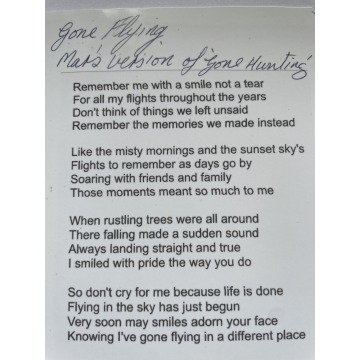 Gone Flying
Mars version of "Gone Hunting"
Remember me with a smile not a tear
For all my flights throughout the years
Don't think of things we left unsaid
Remember the memories we made instead
Like the misty mornings and the sunset sky's
Flights to remember as days go by
Soaring with friends and family
Those moments meant so much to me
When rustling trees were all around
There falling made a sudden sound
Always landing straight and true
I smiled with pride the way you do
So don't cry for me because life is done
Flying in the sky has just begun
Very soon may smiles adorn your face
Knowing I've gone flying in a different place